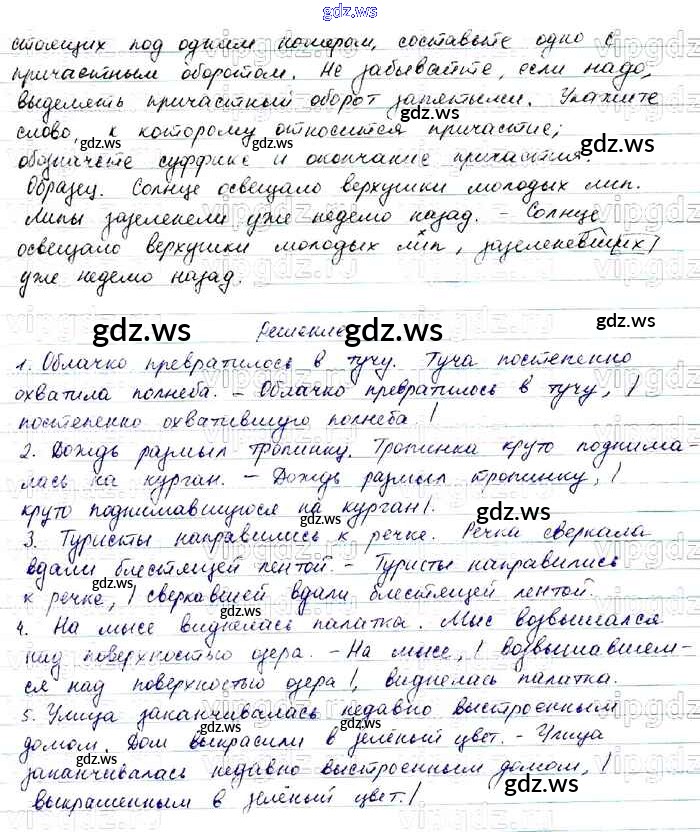 gdz.ws
стоящих под одним номером, составьте одно с
причастным оборотом. Не забывайте, если надо,
выделять причастный оборот запятыми. Укажите
слово, к которому относится причастие;
обозначьте суффикс и окончание причастия.
Образец. Солнце освещало верхушки молодых лип.
Липы зазеленели уже неделю назад. - Солнце
освещало верхушки молодых лип, зазеленевших |
уже неделю назад.
Решение
1. Облачко превратилось в тучу. Туча постепенно
охватила полнеба. - Облачко превратилось в тучу, |
постепенно охватившую полнеба. |
2. Дождь размыл тропинку. Тропинка круто поднима-
лась на курган. - Дождь размыл тропинку, |
круто поднимавшуюся на курган |.
3. Туристы направились к речке. Речка сверкала
вдали блестящей лентой. - Туристы направились
к речке, | сверкавшей вдали блестящей лентой.
4. На мысе виднелась палатка. Мыс возвышался
над поверхностью озера. - На мысе, | возвышавшем-
ся над поверхностью озера |, виднелась палатка.
5. Улица заканчивалась недавно выстроенным
домом. Дом выкрасили в зелёный цвет. - Улица
заканчивалась недавно выстроенным домом, |
выкрашенным в зелёный цвет. |